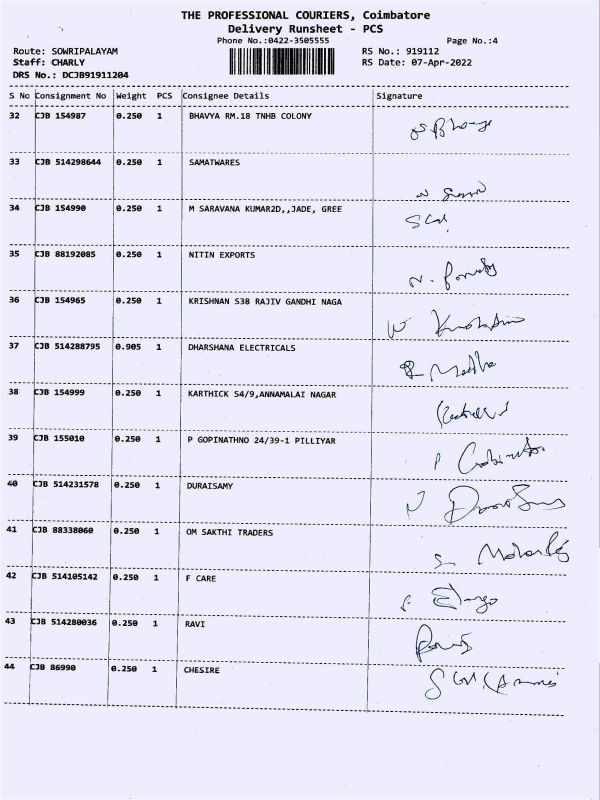 THE PROFESSIONAL COURIERS, Coimbatore
Delivery Runsheet - PCS
Phone No.:0422-3505555
Page No.:4
Route: SOWRIPALAYAM
RS No.: 919112
Staff: CHARLY
RS Date: 07-Apr-2022
DRS No.: DCJB91911204
S No Consignment No Weight PCS Consignee Details Signature
32 CJB 154987 0.250 1 BHAVYA RM.18 TNHB COLONY
33 CJB 514298644 0.250 1 SAMATWARES
34 CJB 154990 0.250 1 M SARAVANA KUMAR2D,,JADE, GREE
35 CJB 88192085 0.250 1 NITIN EXPORTS
36 CJB 154965 0.250 1 KRISHNAN S38 RAJIV GANDHI NAGA
37 CJB 514288795 0.905 1 DHARSHANA ELECTRICALS
38 CJB 154999 0.250 1 KARTHICK S4/9,ANNAMALAI NAGAR
39 CJB 155010 0.250 1 P GOPINATHNO 24/39-1 PILLIYAR
40 CJB 514231578 0.250 1 DURAISAMY
41 CJB 88338060 0.250 1 OM SAKTHI TRADERS
42 CJB 514105142 0.250 1 F CARE
43 CJB 514280036 0.250 1 RAVI
44 CJB 86990 0.250 1 CHESIRE